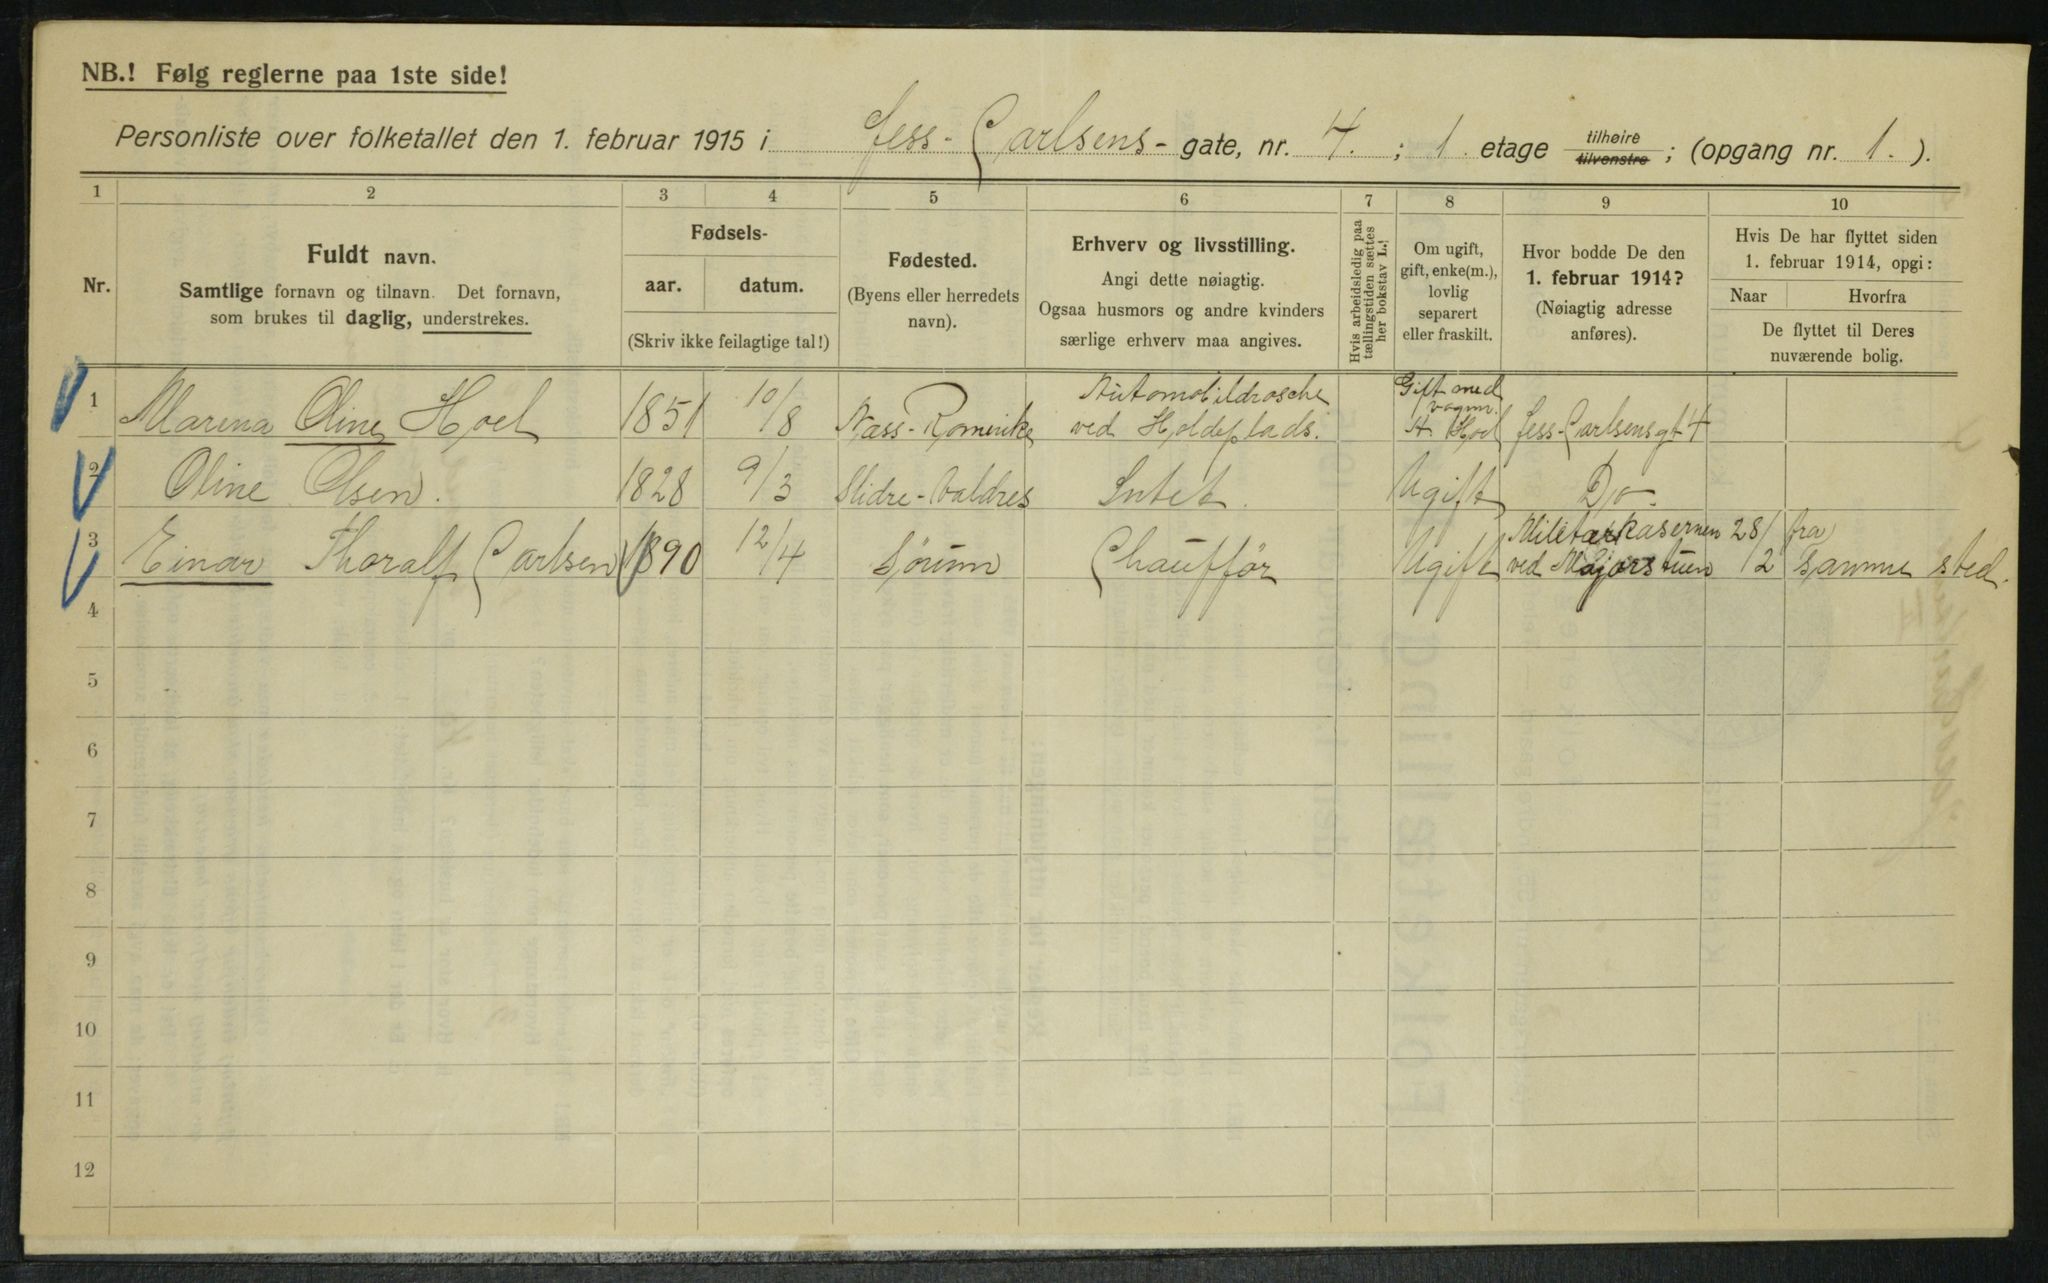 NB.! Følg reglerne paa 1ste side!
Personliste over folketallet den 1. februar 1915 i Jess-Carlsens-gate, nr. 4. ; 1 etage tilhøire tilvenstre ; (opgang nr. 1. ).
1 2 3 4 5 6 7 8 9 10
Nr.
Fuldt navn.
Samtlige fornavn og tilnavn. Det fornavn,
som brukes til daglig, understrekes.
Fødsels-
aar. datum.
(Skriv ikke feilagtige tal!)
Fødested.
(Byens eller herredets
navn).
Erhverv og livsstilling.
Angi dette nøiagtig.
Ogsaa husmors og andre kvinders
særlige erhverv maa angives.
Hvis arbeidsledig paa
tællingstiden sættes
her bokstav L.!
Om ugift,
gift, enke(m.),
lovlig
separert
eller fraskilt.
Hvor bodde De den
1. februar 1914?
(Nøiagtig adresse
anføres).
Hvis De har flyttet siden
1. februar 1914, opgi:
Naar Hvorfra
De flyttet til Deres
nuværende bolig.
1 Marena Oline Hoel 1851 10/8 Næss-Romerike Automobildrosche ved Holdeplads. Gift med vognm. H. Hoel Jess-Carlsensgt 4
2 Oline Olsen. 1828 9/3 Slidre-Valdres Intet. Ugift Do
3 Einar Thoralf Carlsen 1890 12/4 Sørum Chauffør Ugift Militærkasernen ved Majorstuen 28/12 fra samme sted.
4
5
6
7
8
9
10
11
12